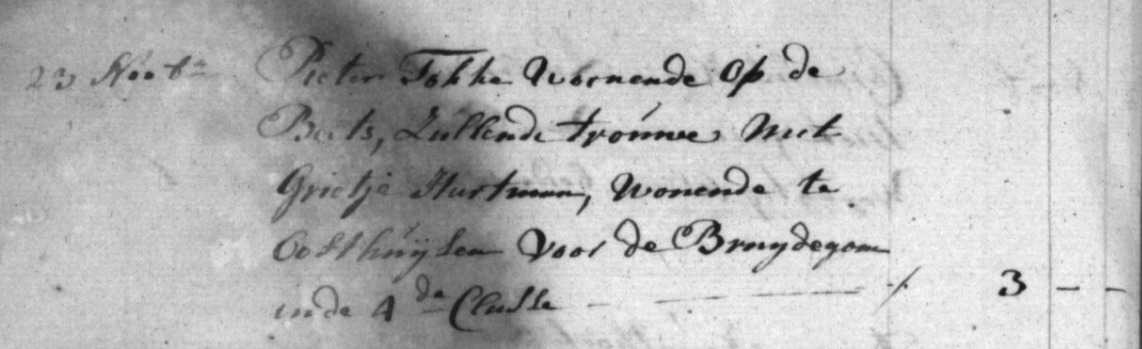 23 Novbr Pieter Tokke Woonende Op de
Beets, Zullende trouwe Met
Grietje Hartman, Wonende te
Oosthuÿsen Voor de Bruydegom
inde 4de Classe — — — / 3 – –